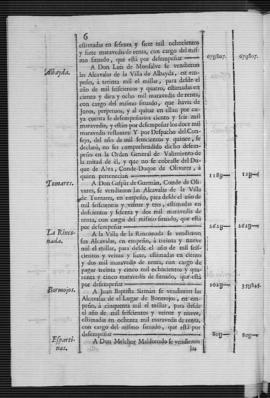 6
estimadas en sesenta y siete mil ochocientos
y siete maravedis de renta, con cargo del mis-
mo situado, que está por desempeñar
67y807.
67y807.
Albayda.
A Don Luis de Monsalve se vendieron
las Alcavalas de la Villa de Albayda, en em-
peño, á treinta mil el millar, para desde el
año de mil seiscientos y quatro, estimadas en
ciento y diez y ocho mil maravedis de renta,
con cargo del mismo situado, que havia de
Juros, perpetuo, y al quitar en ellas por cu-
ya cuenta se desempeñaron ciento y seis mil
maravedis, y están por desempeñar los doce mil
maravedis restantes: Y por Despacho del Con-
sejo, del año de mil seiscientos y quince, se
declaró, no ser comprehendido dicho desem-
peño en la Orden General de Valimiento de
la mitad de él, y que no se cobrasse del Duque
de Alva, Conde-Duque de Olivares, á
quien pertenecian
118y
Tomares.
A Don Gaspár de Guzmán, Conde de Oli-
vares, se vendieron las Alcavalas de la Villa
de Tomares, en empeño, para desde el año de
mil seiscientos y veinte y tres, estimadas en
con cargo del mismo situado, que está
por desempeñar
La Rinco-
nada.
A la Villa de la Rinconada se vendieron
sus Alcavalas, en empeño, á treinta y nueve
mil el millar, para desde el año de mil seis-
cientos y veinte y siete, estimadas en ciento
y dos mil maravedis de renta, con cargo de
pagar treinta y cinco mil ochocientos y qua-
renta y cinco maravedis de situado, que está
por desempeñar
Bormujos.
A Juan Baptista Sirmán se vendieron las
Alcavalas de el Lugar de Bormujos, en em-
peño, á cinquenta mil el millar, para desde
el año de mil seiscientos y veinte y nueve,
estimadas en ochenta mil maravedis de renta,
con cargo del mismo situado, que está por
desempeñar
80y
80y
Esparti-
nas.
A Don Melchor Maldonado se vendieron
las